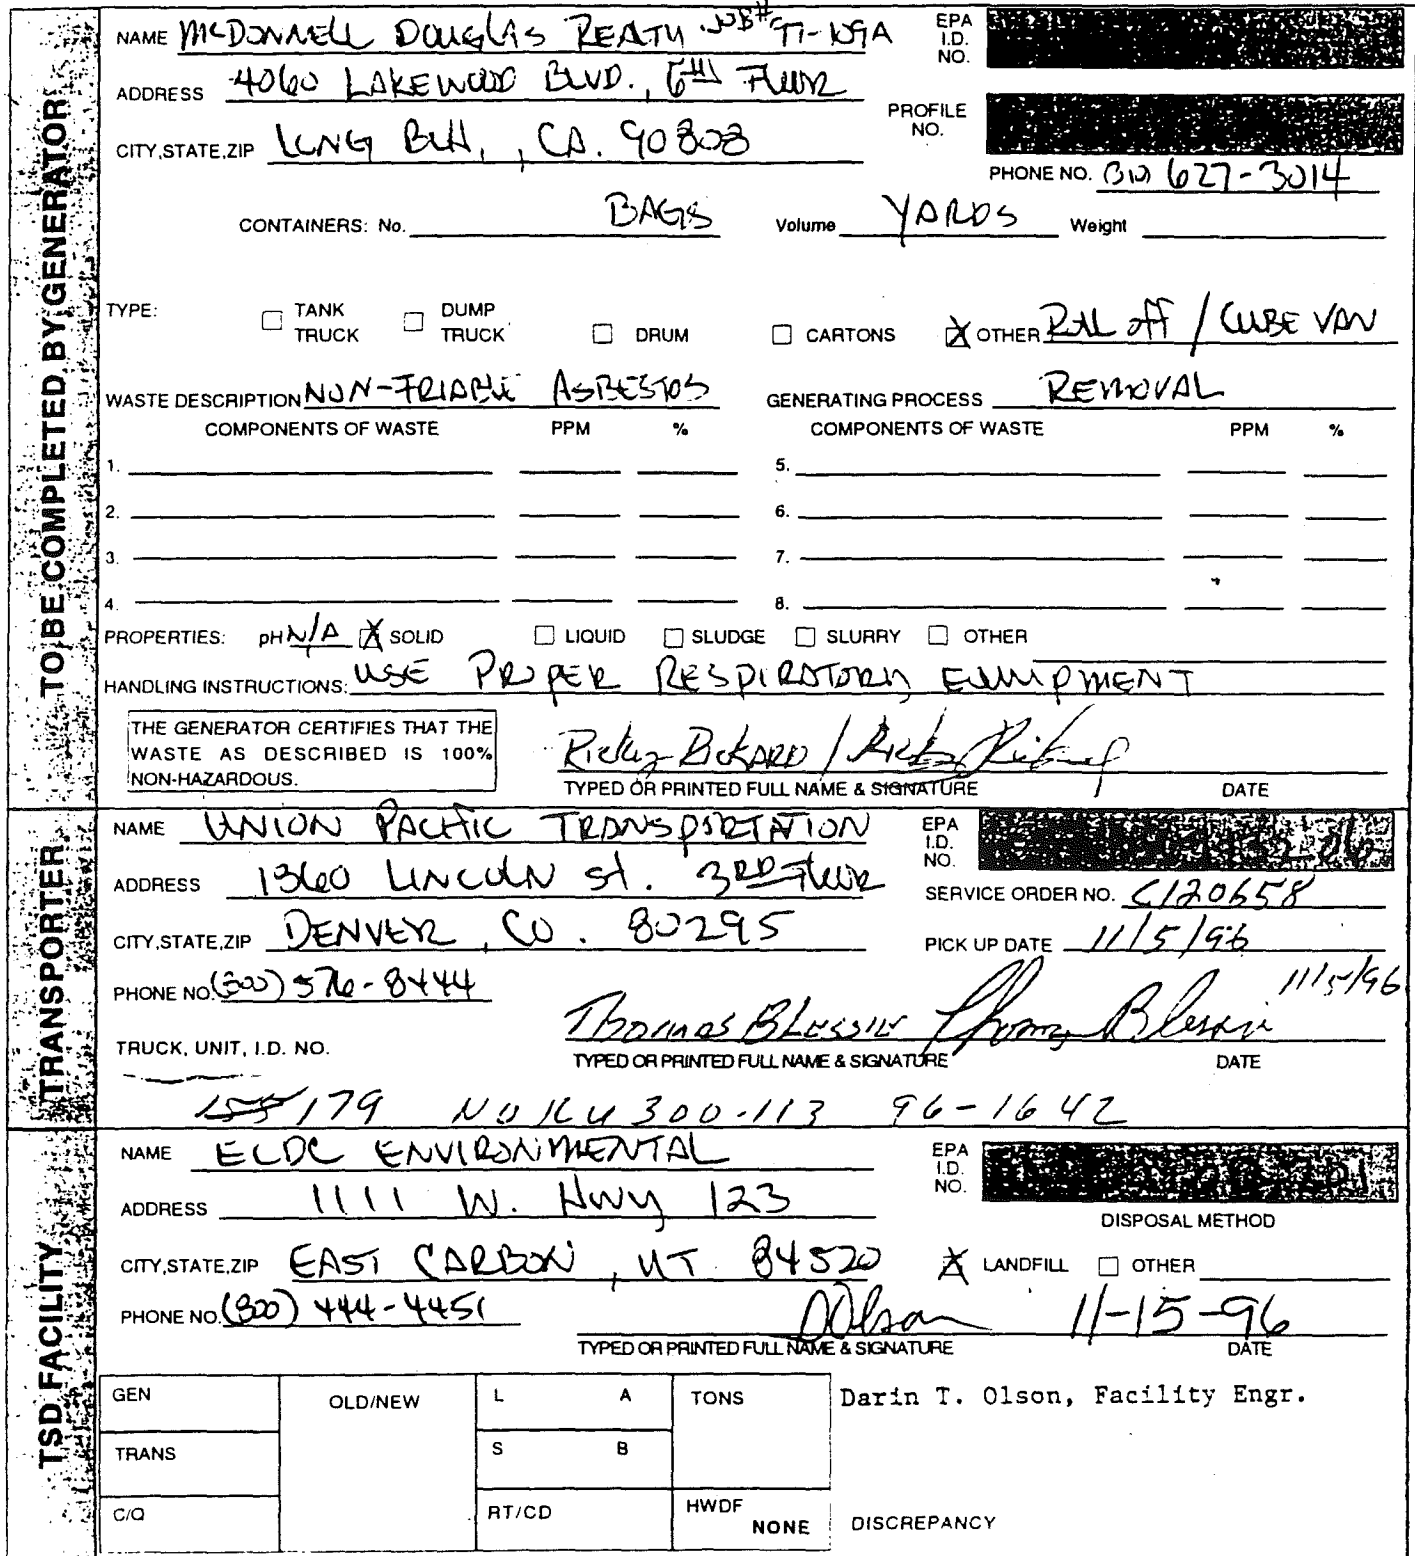 TO BE COMPLETED BY GENERATOR
NAME McDONNELL DOUGLAS REALTY JOB#
EPA I.D. NO.
ADDRESS 4060 LAKEWOOD BLVD., 6TH FLOOR
PROFILE NO.
CITY,STATE,ZIP LONG BCH, , CA. 90808
PHONE NO. (310) 627-3014
CONTAINERS: No. BAGS Volume YARDS Weight
TYPE: TANK TRUCK DUMP TRUCK DRUM CARTONS X OTHER ROLL OFF / CUBE VAN
WASTE DESCRIPTION NON-FRIABLE ASBESTOS GENERATING PROCESS REMOVAL
COMPONENTS OF WASTE PPM % COMPONENTS OF WASTE PPM %
1. 5.
2. 6.
3. 7.
4. 8.
PROPERTIES: pH N/A X SOLID LIQUID SLUDGE SLURRY OTHER
HANDLING INSTRUCTIONS: USE PROPER RESPIRATORY EQUIPMENT
THE GENERATOR CERTIFIES THAT THE
WASTE AS DESCRIBED IS 100%
NON-HAZARDOUS.
TYPED OR PRINTED FULL NAME & SIGNATURE DATE
TRANSPORTER
NAME UNION PACIFIC TRANSPORTATION
EPA I.D. NO.
ADDRESS 1360 LINCOLN St. 3RD FLOOR
SERVICE ORDER NO. C120658
CITY,STATE,ZIP DENVER, CO. 80295
PICK UP DATE 11/5/96
PHONE NO. (800) 576-8444
Thomas 11/5/96
TRUCK, UNIT, I.D. NO.
TYPED OR PRINTED FULL NAME & SIGNATURE DATE
179 300-113 96-1642
TSD FACILITY
NAME ECDC ENVIRONMENTAL
EPA I.D. NO.
ADDRESS 1111 W. Hwy 123
DISPOSAL METHOD
CITY,STATE,ZIP EAST CARBON, UT. 84520
X LANDFILL OTHER
PHONE NO. (800) 444-4451
DOlson 11-15-96
TYPED OR PRINTED FULL NAME & SIGNATURE DATE
GEN OLD/NEW L A TONS Darin T. Olson, Facility Engr.
TRANS S B
C/Q RT/CD HWDF NONE DISCREPANCY